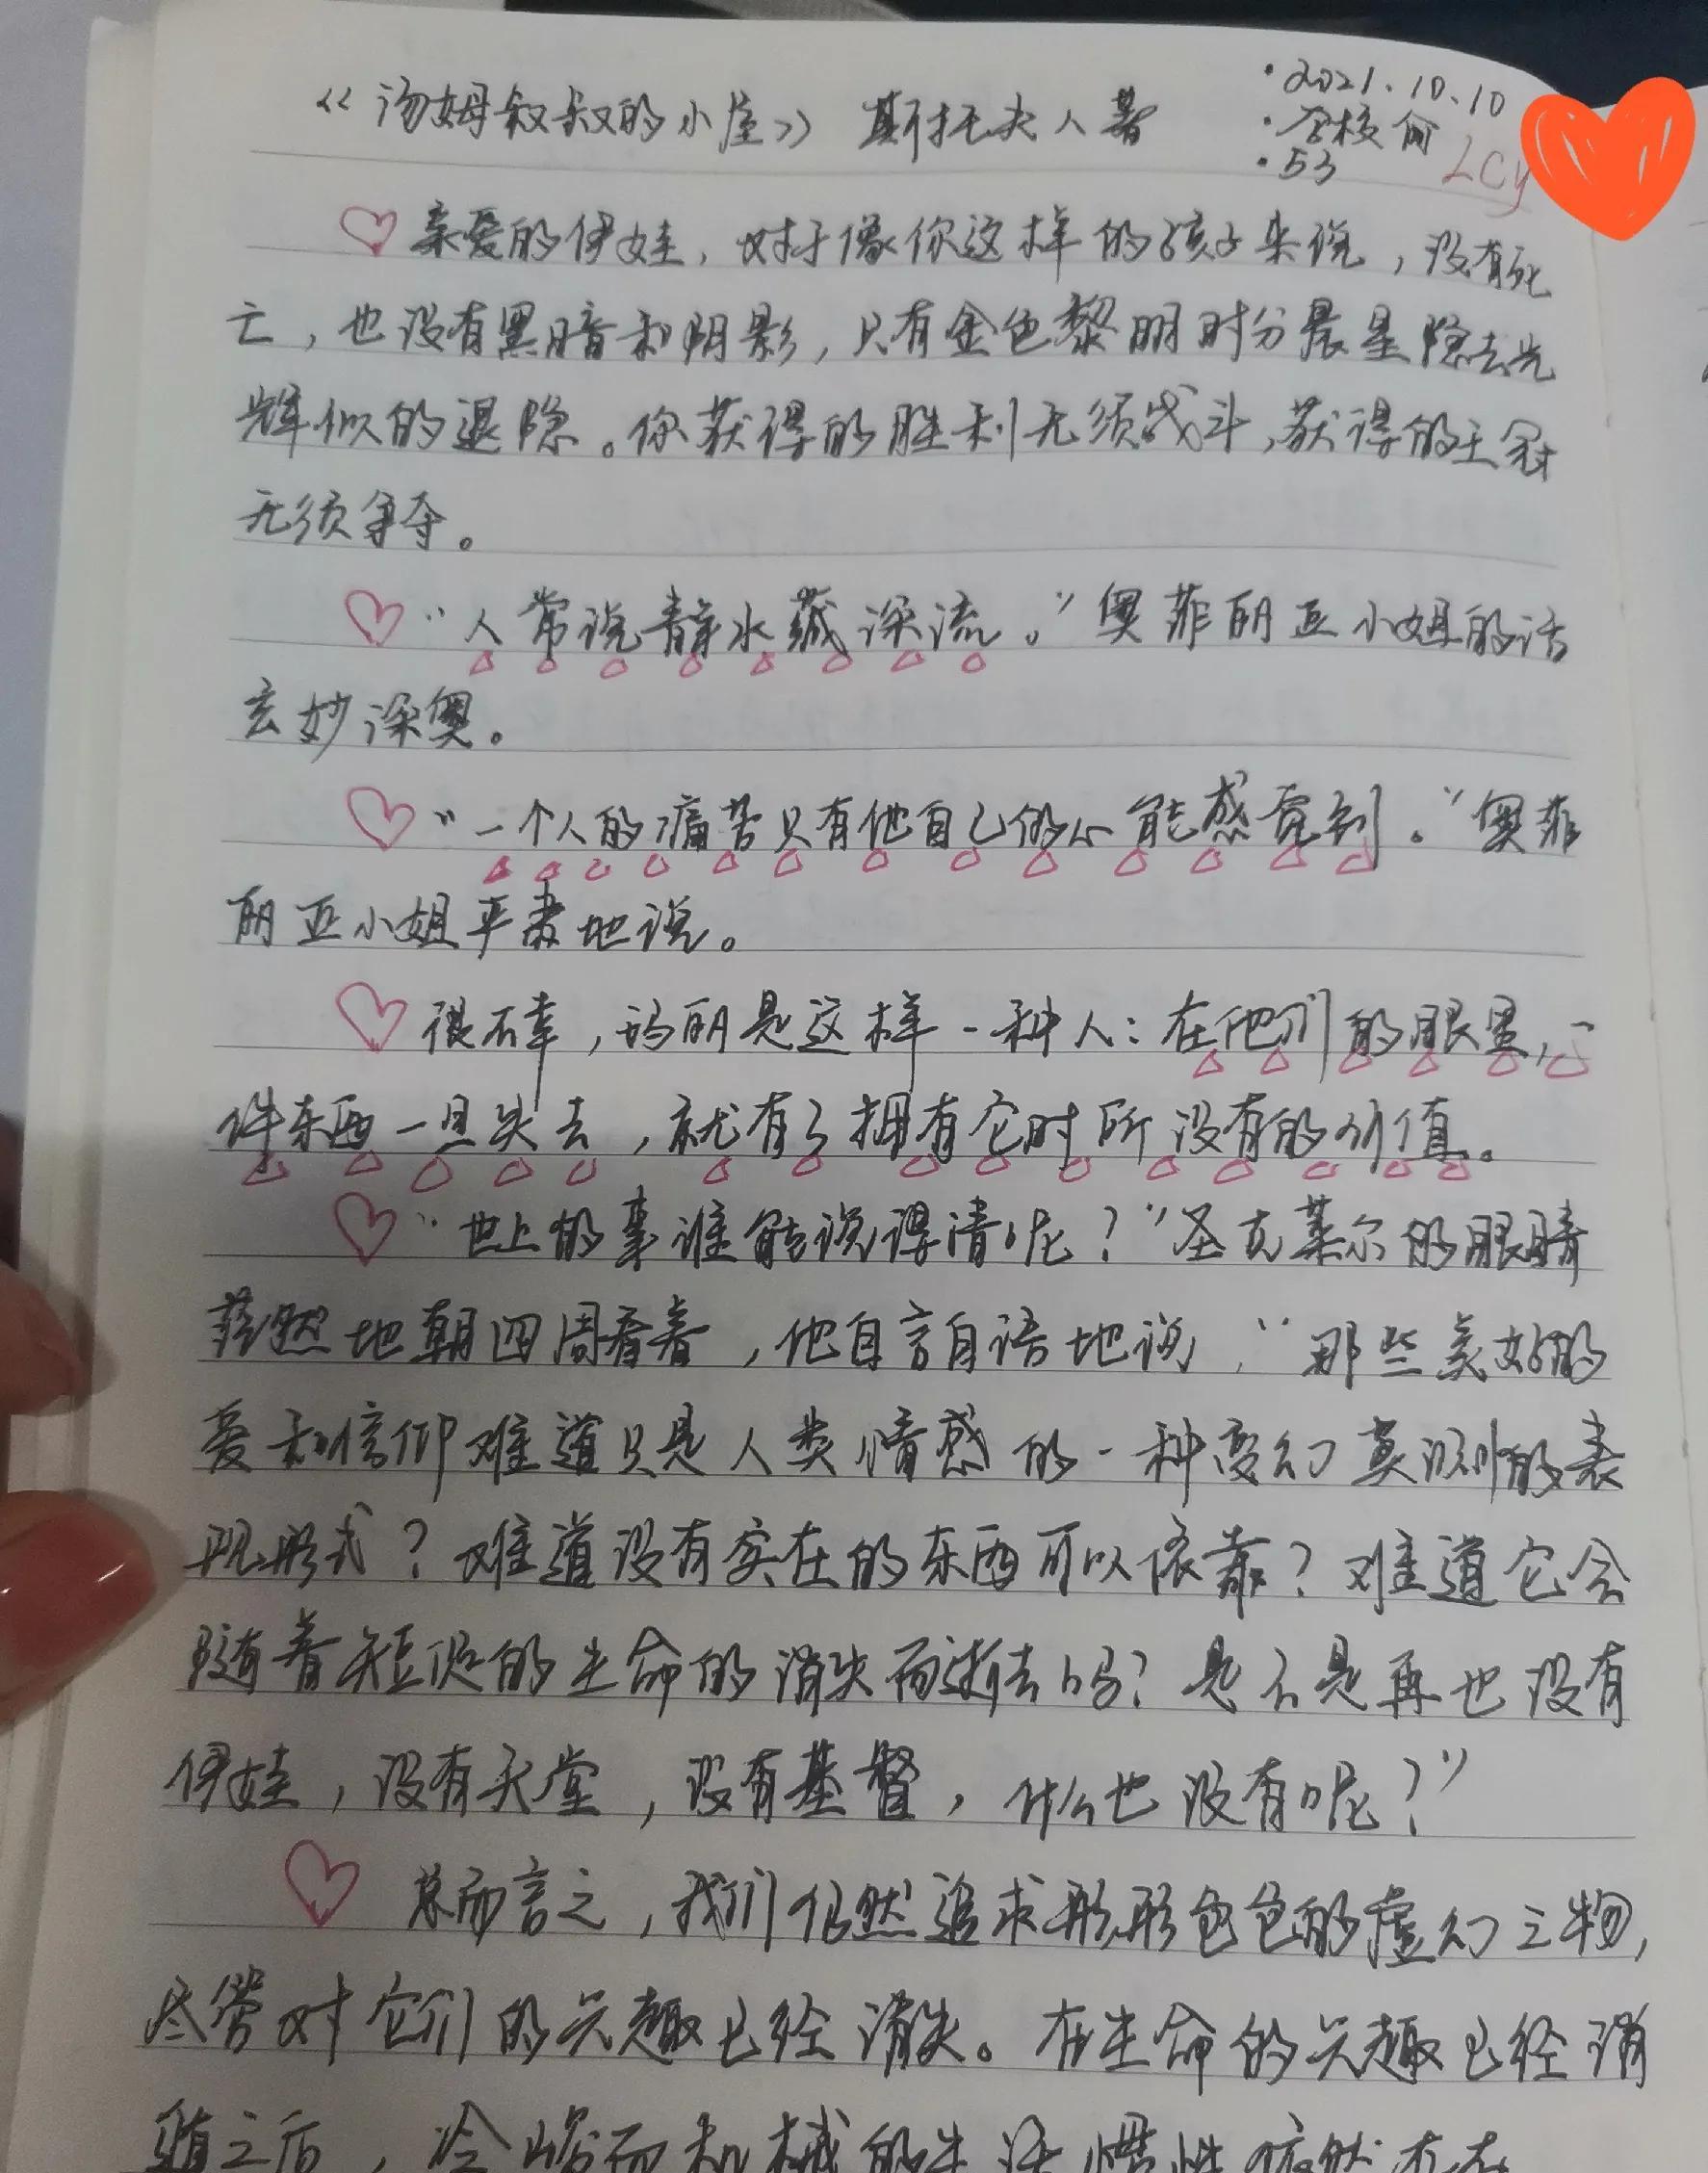 《汤姆叔叔的小屋》 斯托夫人著
·2021.10.10
·学校
·53
LCy
亲爱的伊娃，对于像你这样的孩子来说，没有死
亡，也没有黑暗和阴影，只有金色黎明时分晨星隐去光
辉似的退隐。你获得的胜利无须战斗，获得的王冠
无须争夺。
“人常说静水藏深流。”奥菲丽亚小姐的话
玄妙深奥。
“一个人的痛苦只有他自己的心能感觉到。”奥菲
丽亚小姐平肃地说。
很不幸，玛丽是这样一种人：在他们的眼里，一
件东西一旦失去，就有了拥有它时所没有的价值。
“世上的事谁能说得清呢？”圣克莱尔的眼睛
茫然地朝四周看着，他自言自语地说，“那些美好的
爱和信仰难道只是人类情感的一种变幻莫测的表
现形式？难道没有实在的东西可以依靠？难道它会
随着短促的生命的消失而逝去吗？是不是再也没有
伊娃，没有天堂，没有基督，什么也没有呢？”
总而言之，我们仍然追求形形色色的虚幻之物，
尽管对它们的兴趣已经消失。在生命的兴趣已经消
殒之后，冷峻而机械的生活惯性依然存在